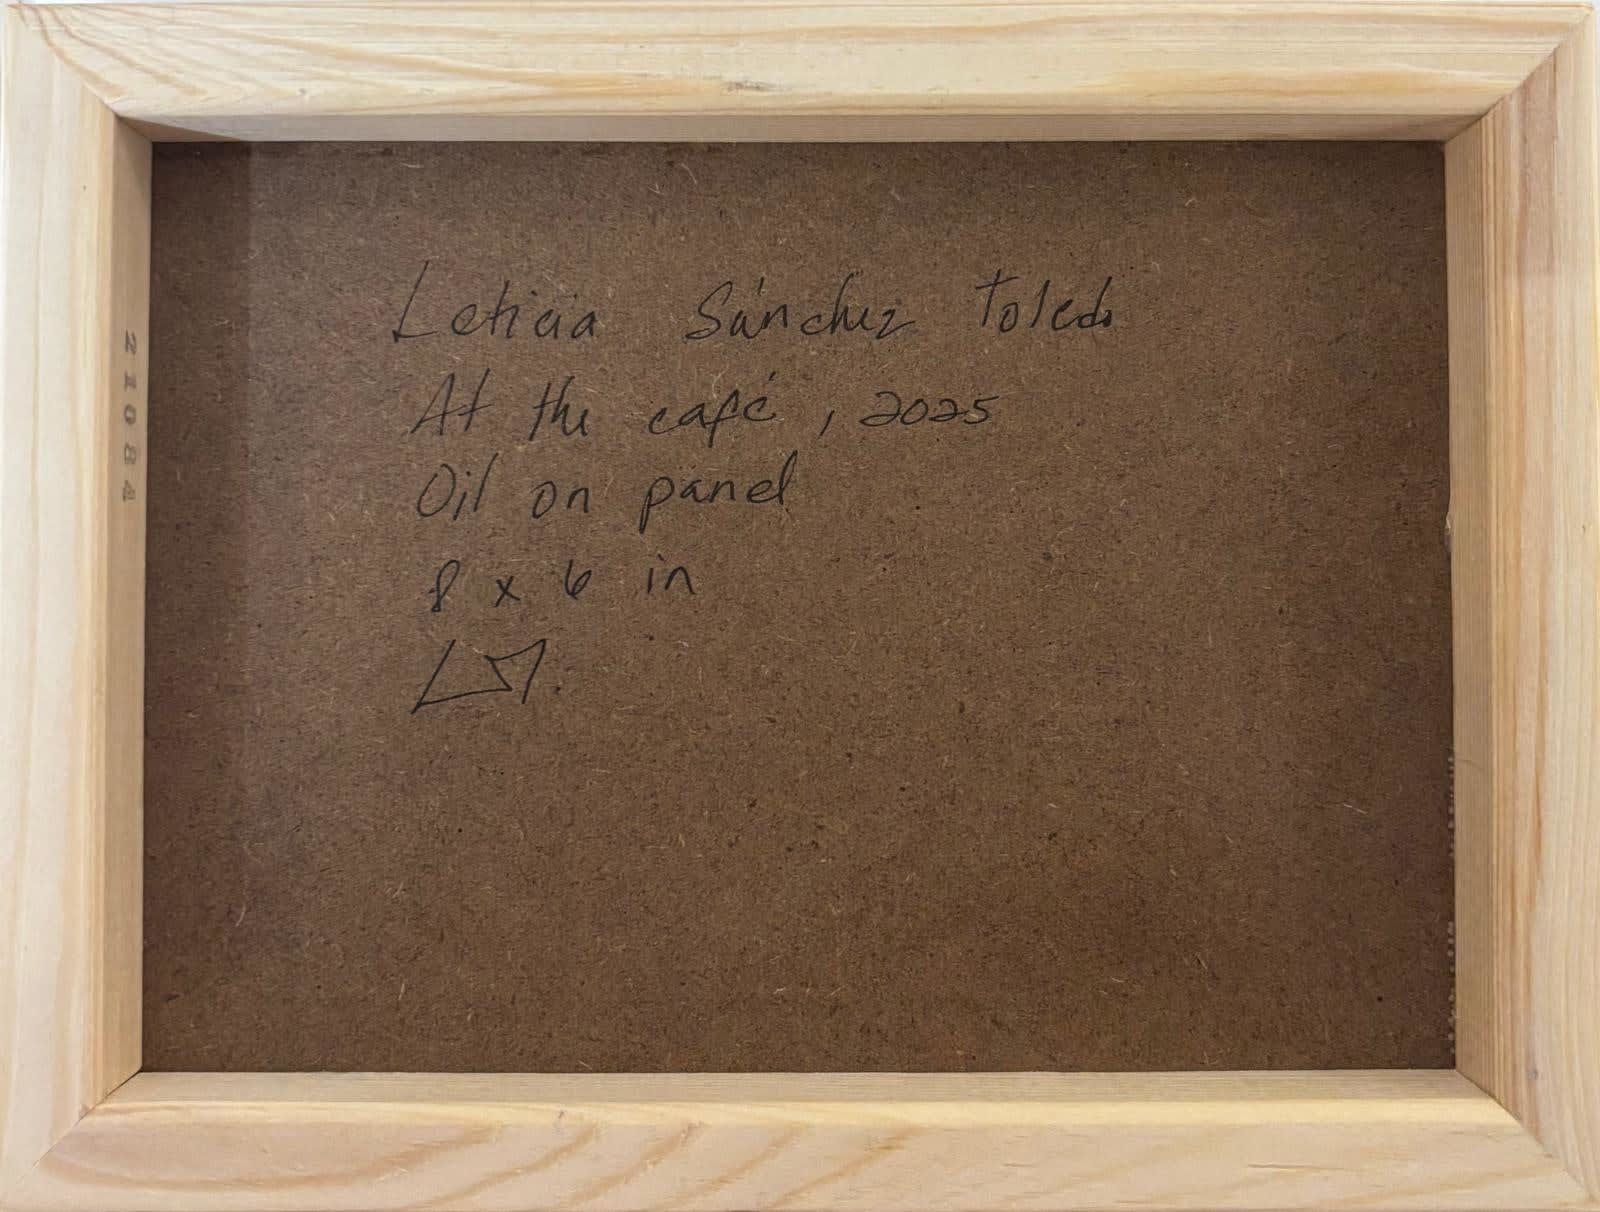 Leticia Sánchez Toledo
At the café, 2025
Oil on panel
8 x 6 in
LST.
21084